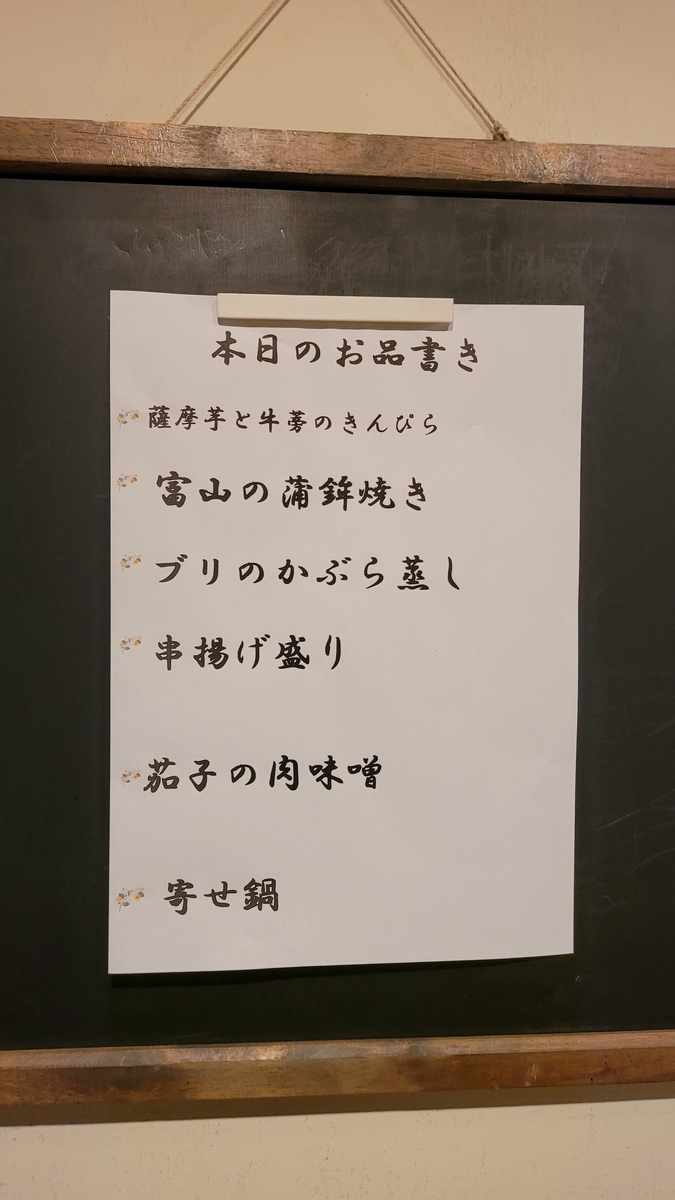 本日のお品書き
薩摩芋と牛蒡のきんぴら
富山の蒲鉾焼き
ブリのかぶら蒸し
串揚げ盛り
茄子の肉味噌
寄せ鍋